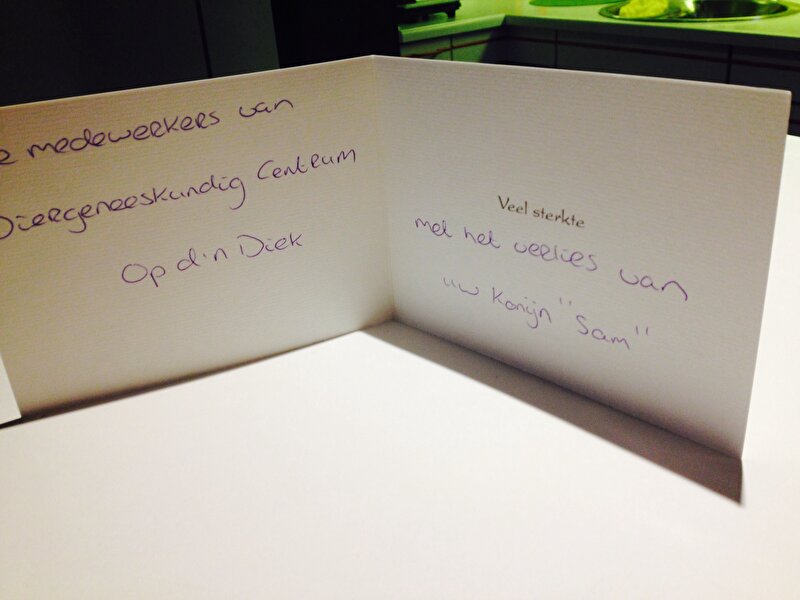 e medewerkers van
Diergeneeskundig Centrum
Op d'n Diek
Veel sterkte
met het verlies van
uw Konijn "Sam"